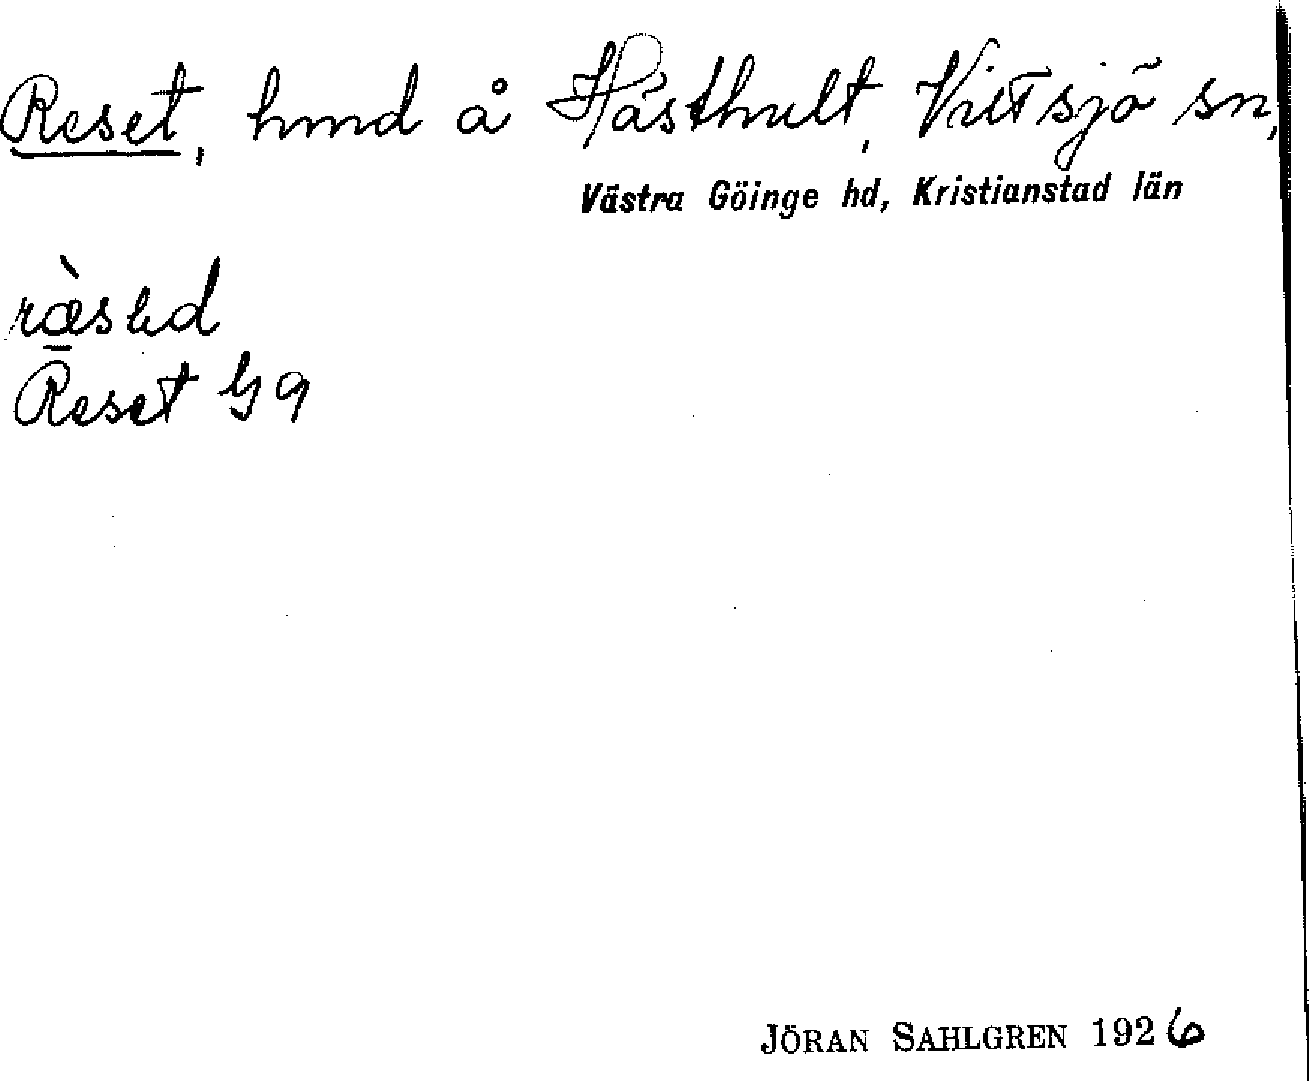 Reset, hmd å Hästhult, Vittsjö sn,
Västra Göinge hd, Kristianstad län
Reset G9
JÖRAN SAHLGREN 1926